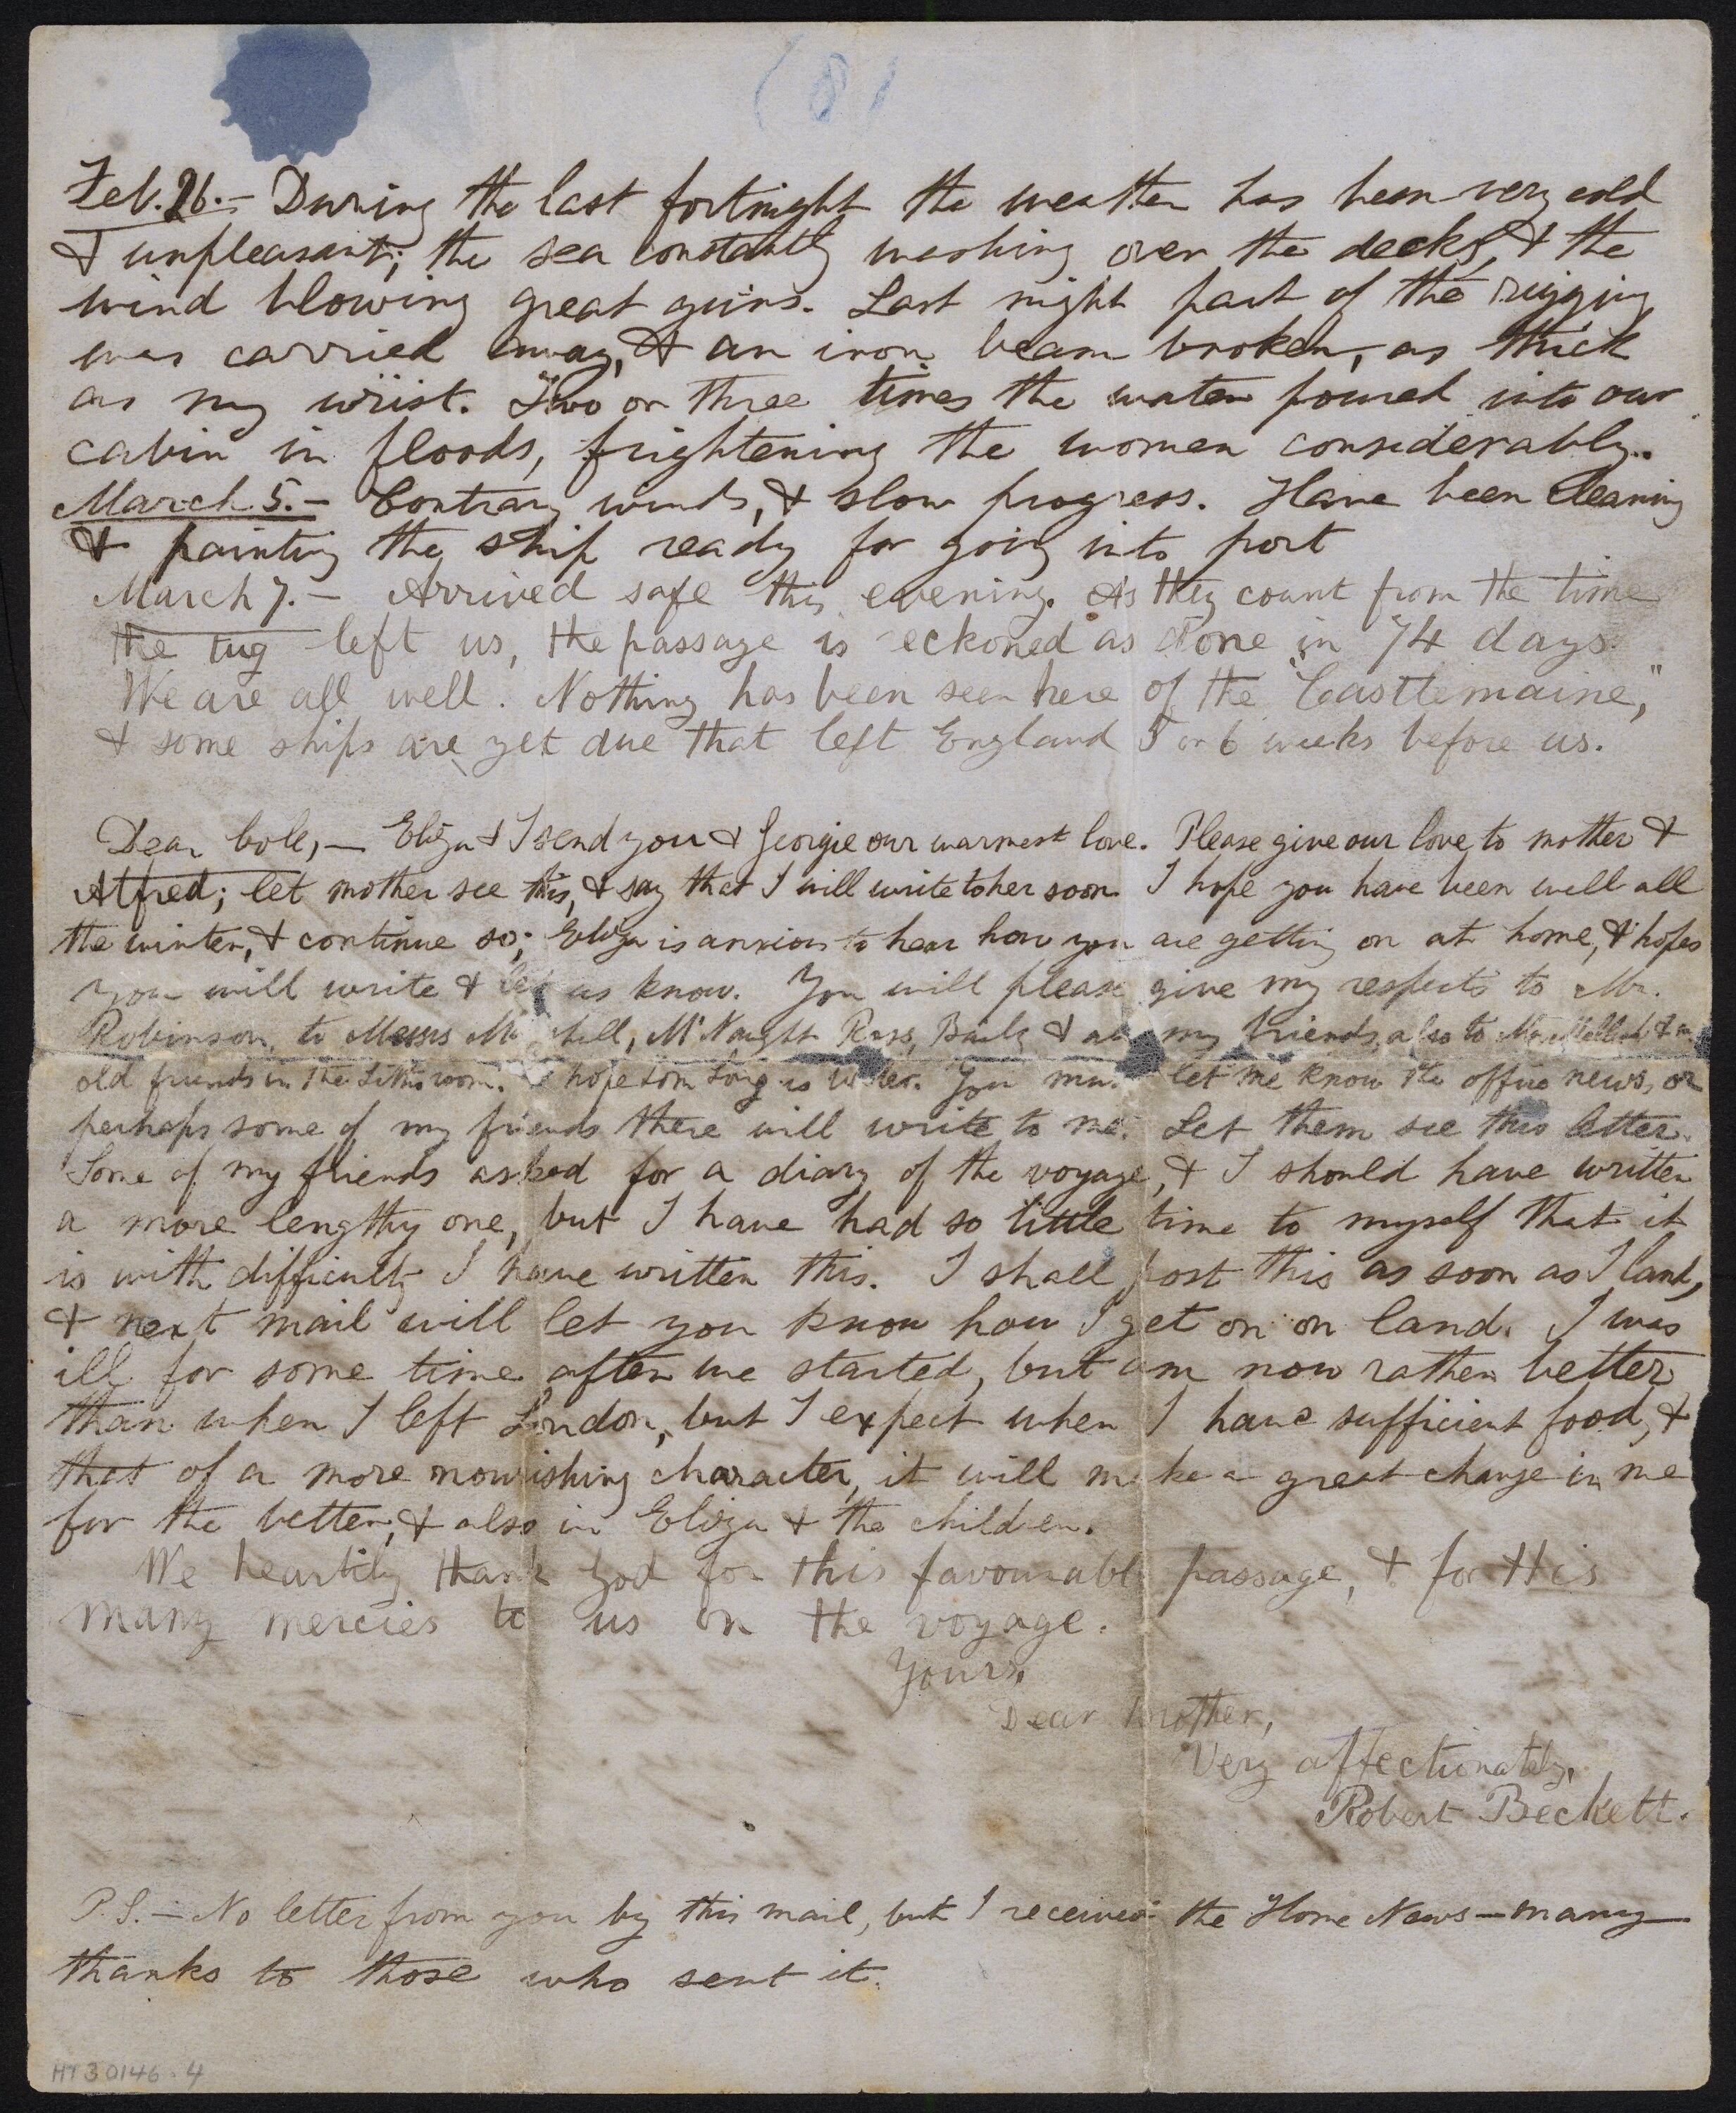 (8)
Feb. 26. — During the last fortnight the weather has been very cold
& unpleasant; the sea constantly washing over the decks, & the
wind blowing great guns. Last night part of the rigging
was carried away, & an iron beam broken, as thick
as my wrist. Two or three times the water poured into our
cabin in floods, frightening the women considerably.
March 5. — Contrary winds, & slow progress. Have been cleaning
& painting the ship ready for going into port
March 7. — Arrived safe this evening. As they count from the time
the tug left us, the passage is reckoned as done in 74 days.
We are all well. Nothing has been seen here of the "Castlemaine,"
& some ships are yet due that left England 5 or 6 weeks before us.
Dear Cole, — Eliza & I send you & Georgie our warmest love. Please give our love to mother &
Alfred; let mother see this, & say that I will write to her soon. I hope you have been well all
the winter, & continue so; Eliza is anxious to hear how you are getting on at home, & hopes
you will write & let us know. You will please give my respects to Mr.
Robinson, to Messrs M hell, McNaught Ross, & all my friends, also to Mr. &
old friends in the Litho room. I hope Tom Long is better. You must let me know the office news, or
perhaps some of my friends there will write to me. Let them see this letter.
Some of my friends asked for a diary of the voyage, & I should have written
a more lengthy one, but I have had so little time to myself that it
is with difficulty I have written this. I shall post this as soon as I land,
& next mail will let you know how I get on on land. I was
ill for some time after we started, but am now rather better
than when I left London, but I expect when I have sufficient food, &
that of a more nourishing character, it will make a great change in me
for the better, & also in Eliza & the children.
We heartily thank God for this favourable passage, & for His
many mercies to us on the voyage.
Yours,
Dear brother,
Very affectionately,
Robert Beckett.
P.S. — No letter from you by this mail, but I received the Home News — many
thanks to those who sent it.
HT 30146.4